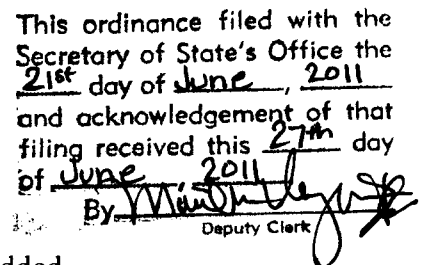 This ordinance filed with the
Secretary of State's Office the
21st day of June, 2011
and acknowledgement of that
filing received this 27th day
of June 2011
By
Deputy Clerk
dded